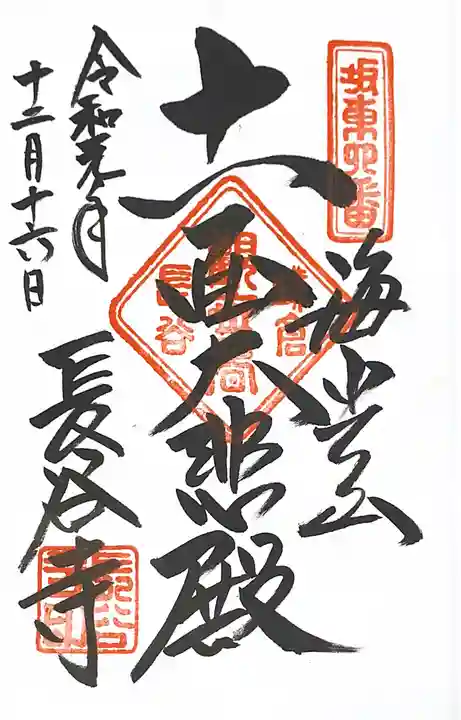 坂東四番
海光山
十一面大悲殿
鎌倉
長谷
令和元年
十二月十六日
長谷寺